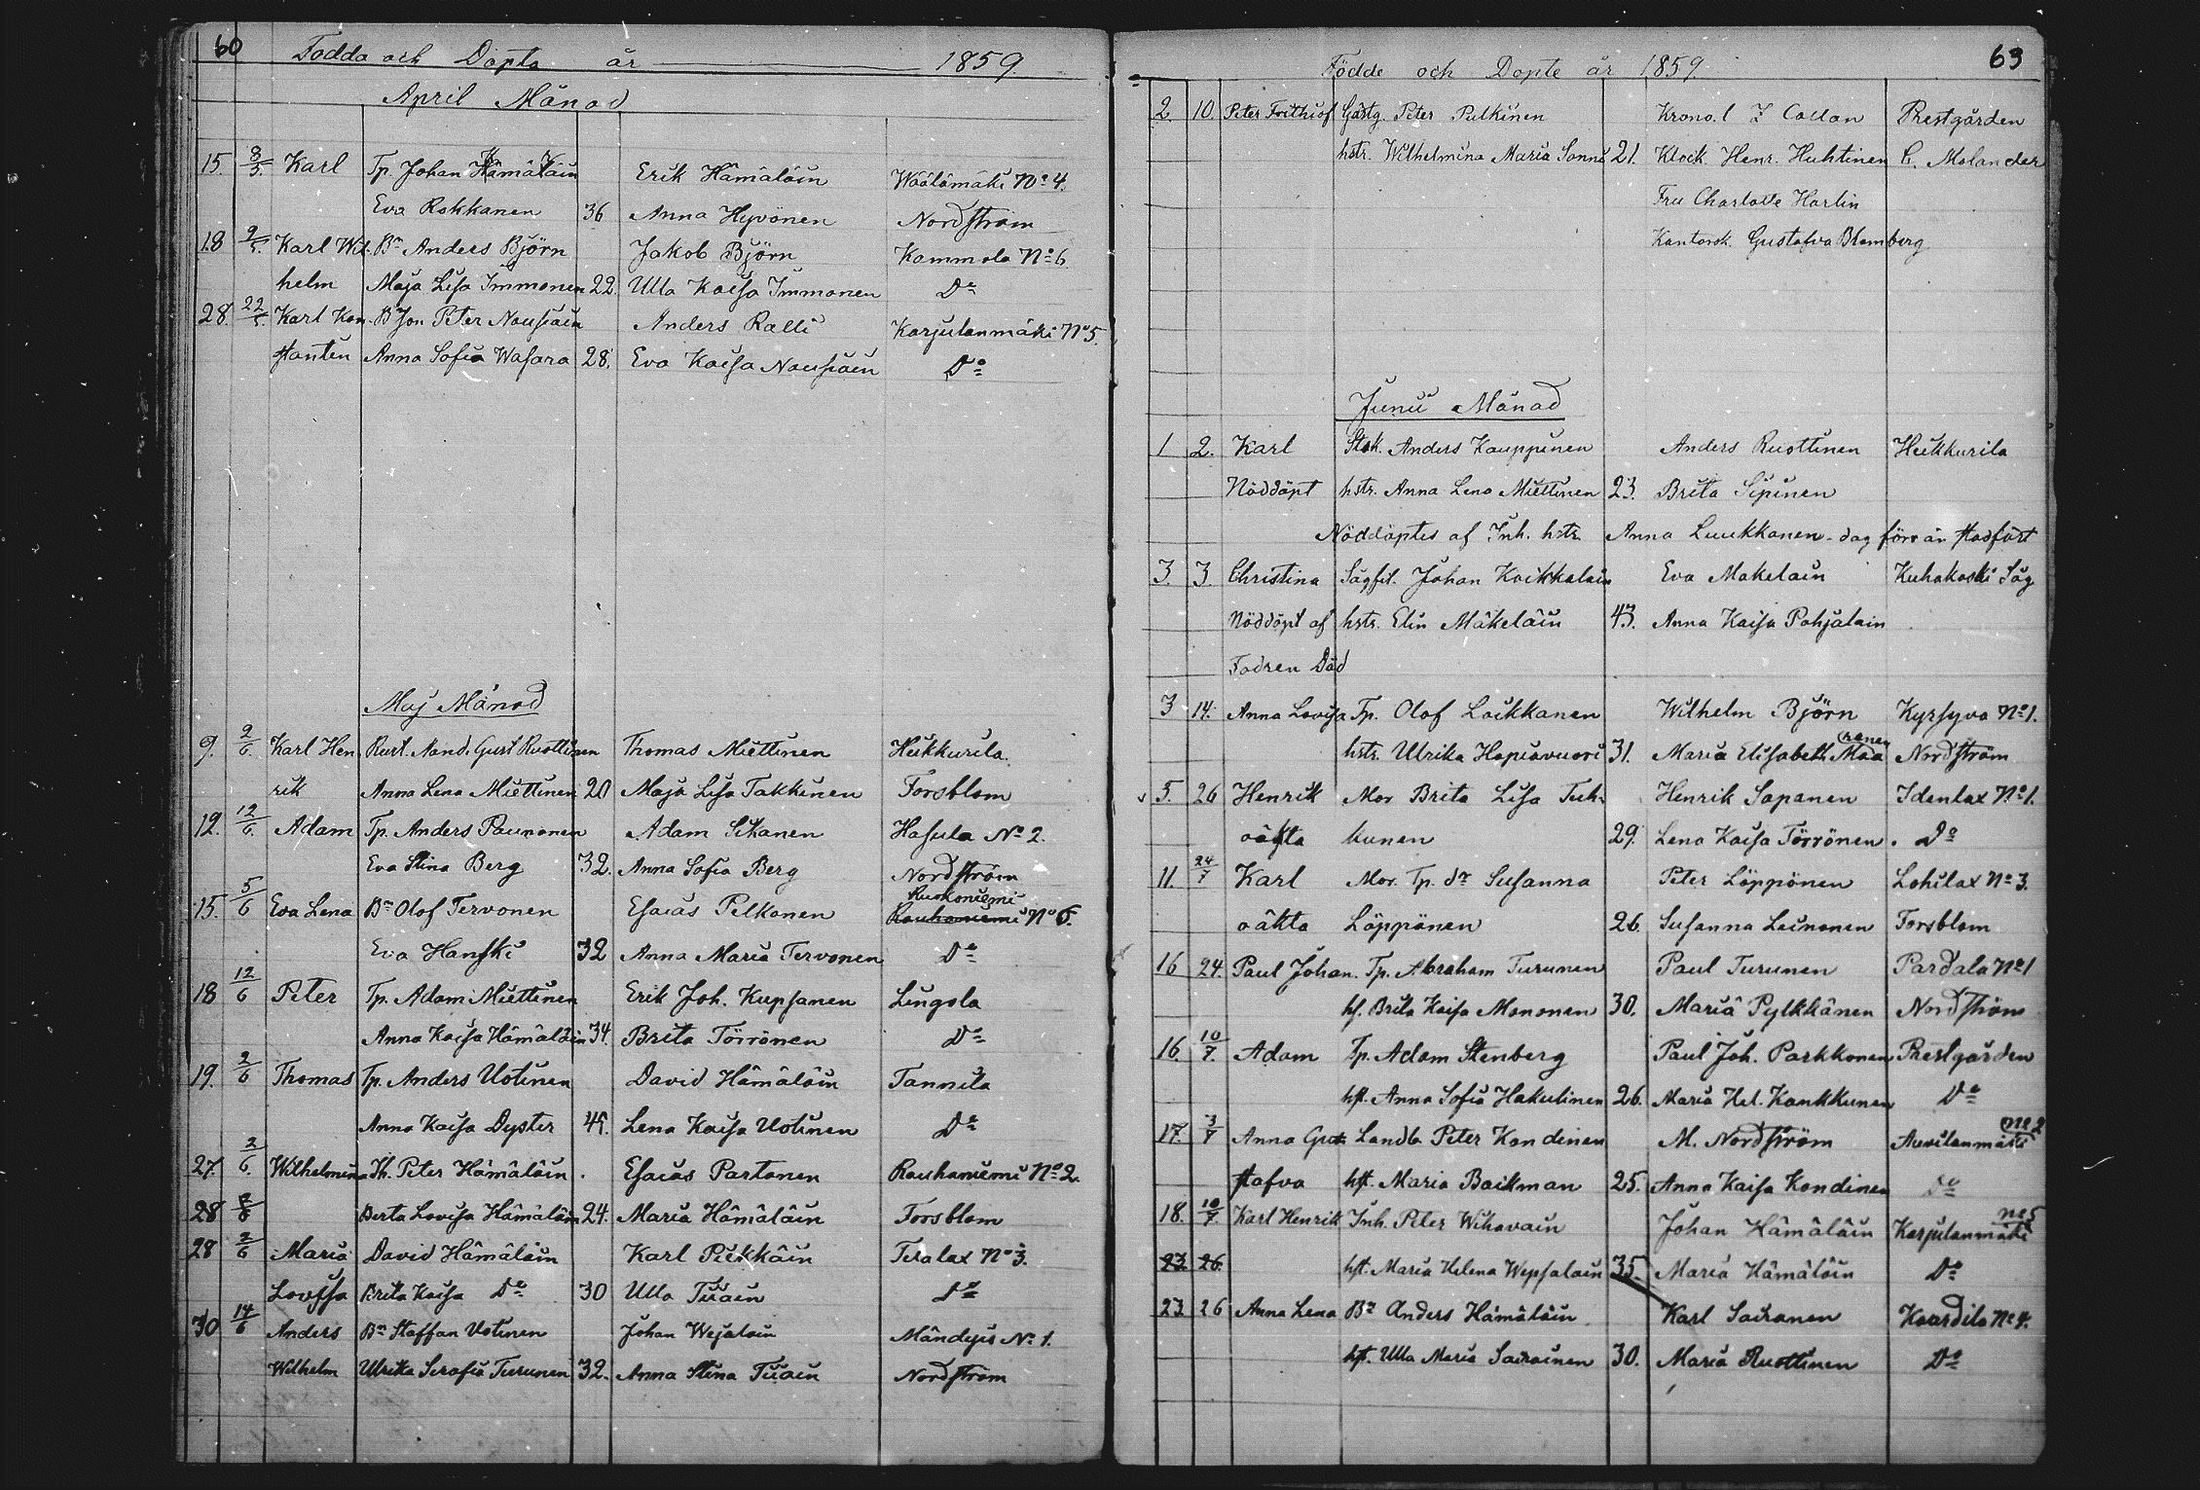 60 Fodda och Döpta år 1859.
April Månad
15 8/5 Karl Tp. Johan Hämäläin Erik Hämäläin Wäälämäki No 4.
Eva Rokkanen 36 Anna Hyvönen Nordström
18 9/5. Karl Wil- Bn Anders Björn Jakob Björn Kommola No 6.
helm Maja Lisa Immonen 22. Ulla Kaisa Immonen Do
28. 22/5. Karl Kon- Bson Peter Nousiäin Anders Ralli Karjulanmäki No 5.
stantin Anna Sofia Wasara 28. Eva Kaisa Nousiäin Do
Maj Månad
9. 2/6 Karl Hen- Rust. Nand. Gust Ruottinen Thomas Miettinen Heikkurila.
rik Anna Lena Miettinen 20 Maja Lisa Takkinen Forsblom
12. 12/6. Adam Tp. Anders Paunonen Adam Sikanen Hasula No 2.
Eva Stina Berg 32. Anna Sofia Berg Nordström
15. 5/6 Eva Lena Bn Olof Tervonen Esaias Pelkonen Ruokoniemi Rouhaniemi No 6.
Eva Hanski 32 Anna Maria Tervonen Do
18 12/6 Peter Tp. Adam Miettinen Erik Joh. Kupsanen Lingola
Anna Kaisa Hämäläin 34. Brita Törrönen Do
19. 2/6 Thomas Tp. Anders Uotinen David Hämäläin Tannila
Anna Kaisa Dyster 45. Lena Kaisa Uotinen Do
27. 2/6. Wilhelmina Th. Peter Hämäläin Esaias Partanen Rauhaniemi No 2.
28 2/6 Berta Lovisa Hämäläin 24. Maria Hämäläin Forsblom
28 2/6 Maria David Hämäläin Karl Piekkäin Teralax No 3.
Lovisa Brita Kaisa Do 30 Ulla Tiiäin Do
30 14/6 Anders Bn Staffan Uotinen Johan Wejalain Mändyis No 1.
Wilhelm Ulrika Serafia Turunen 32. Anna Stina Tiiain Nordström
Födde och Döpte år 1859. 63
2. 10. Peter Frithiof Gästg. Peter Pulkinen Krono.l Z Collan Prestgården
hstr. Wilhelmina Maria Sonni 21. Klock. Henr. Huhtinen C. Molander
Fru Charlotte Harlin
Kantorsk. Gustafva Blomberg
Junii Månad
1 2. Karl Stsk. Anders Kauppinen Anders Ruottinen Heikkurila
Nöddöpt hstr. Anna Lena Miettinen 23. Brita Sipinen
Nöddöptes af Inh. hstr. Anna Luukkanen
3. 3. Christina Sågfil. Johan Koikkalain Eva Makelain Kuhakoski Såg
Nöddöpt af hstr. Elin Mäkeläin 43. Anna Kaisa Pohjalain
Fadren Död
3 14. Anna Lovisa Tp. Olof Loikkanen Wilhelm Björn Kyrsyva No 1.
hstr. Ulrika Hapiavuori 31. Maria Elisabeth Maa ranen Nordström
5. 26 Henrik Mor Brita Lisa Tuh- Henrik Sapanen Idenlax No 1.
oäkta kunen 29. Lena Kaisa Törrönen. Do
11. 24/7 Karl Mor. Tp. dr Susanna Peter Löppönen Lohilax No 3.
oäkta Löppönen 26. Susanna Leinonen Forsblom
16 24. Paul Johan. Tp. Abraham Turunen Paul Turunen Pardala No 1
hf. Brita Kaisa Mononen 30. Maria Pylkkänen Nordström
16. 10/7. Adam Tp. Adam Stenberg Paul Joh. Parkkonen Prestgården
hst. Anna Sofia Hakulinen 26. Maria Hel. Kankkunen Do
17. 3/7 Anna Gu- Landb. Peter Kondinen M. Nordström Auvilanmäki No 2
stafva hst. Maria Backman 25. Anna Kaisa Kondinen Do
18. 10/7. Karl Henrik Inh. Peter Wihavain Johan Hämäläin Karjulanmäki No 5
23. 26. hst. Maria Helena Wepsalain 35. Maria Hämäläin Do
23. 26 Anna Lena Bn Anders Hämäläin Karl Sairanen Kaardila No 4.
hst. Ulla Maria Sairainen 30. Maria Ruottinen Do